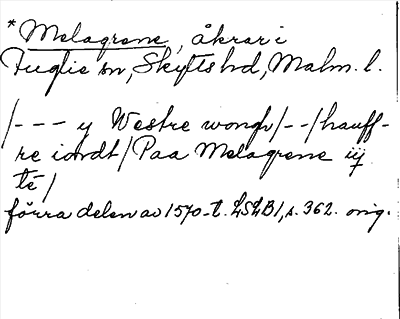 *Melagrene, åkrar i
Fuglie sn, Skytts hd, Malm. l.
/--- y Westre wongh/--/hauff-
re iordt/Paa Melagrene iij
tē/
förra delen av 1570-t. LSLB1, s. 362. orig.